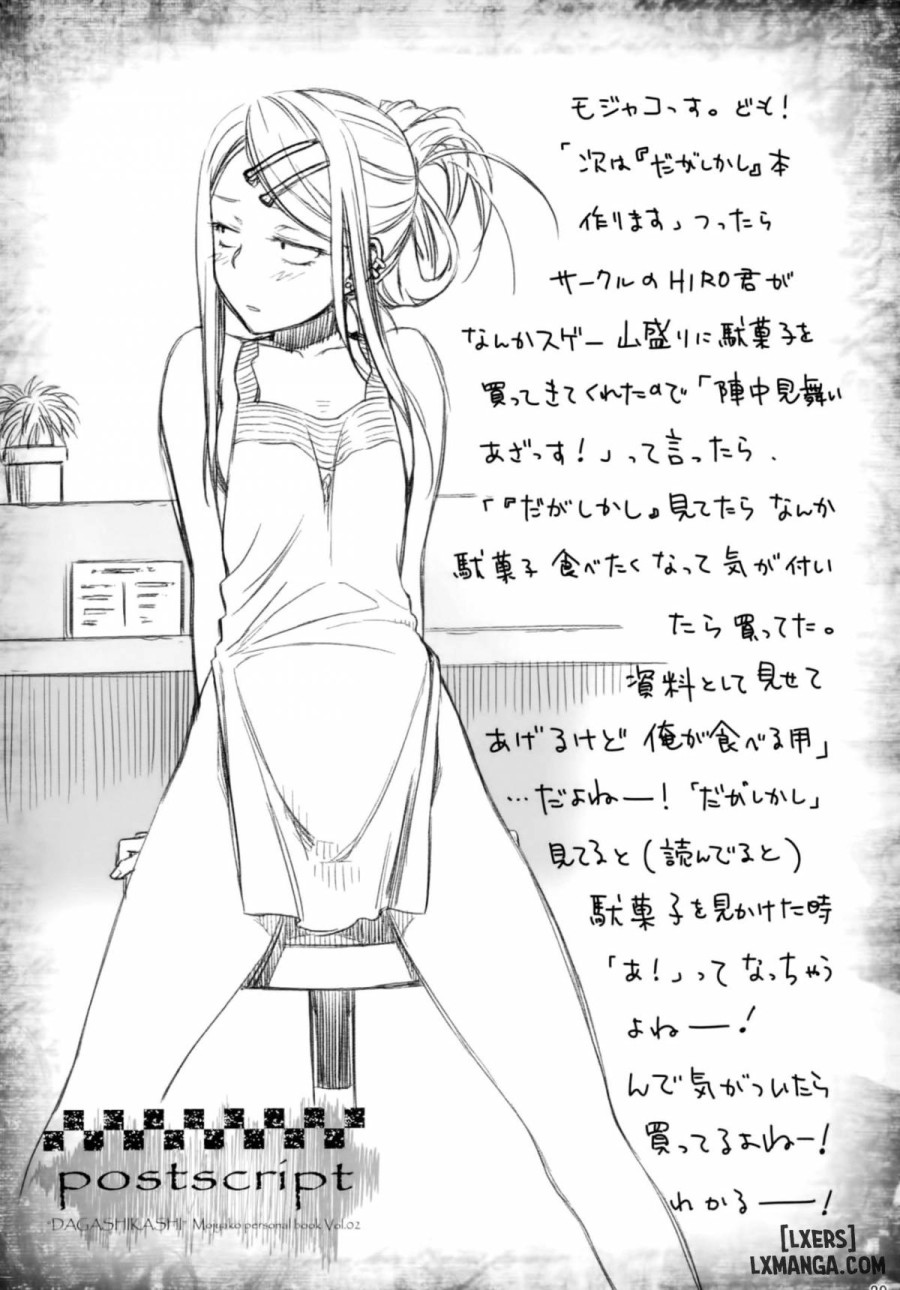 モジャコっす。ども!
「次は『だがしかし』本
作ります」つったら
サークルのHIRO君が
なんかスゲー山盛りに駄菓子を
買ってきてくれたので「陣中見舞い
あざっす!」って言ったら、
「『だがしかし』見てたらなんか
駄菓子食べたくなって気が付い
たら買ってた。
資料として見せて
あげるけど俺が食べる用」
…だよねー!「だがしかし」
見てると(読んでると)
駄菓子を見かけた時
「あ!」ってなっちゃう
よねー!
んで気がついたら
買ってるよねー!
わかるー!
postscript
"DAGASHIKASHI" Mojyako personal book Vol.02
[LXERS]
LXMANGA.COM